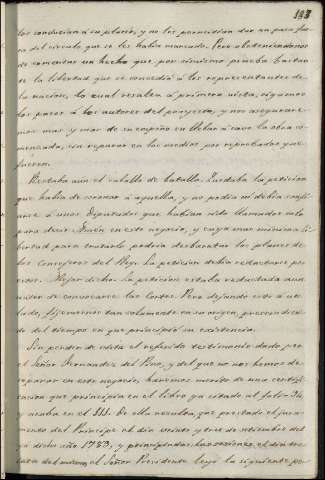 los conducian á su placer, y no les permitian dar un paso fue-
ra del circulo que se les habia marcado. Pero absteniendonos
de comentar un hecho que por sí mismo prueba bastan-
te la libertad que se concedió á los representantes de
la nacion, lo cual resulta á primera vista, sigamos
los pasos á los autores del proyecto, y nos asegurare-
mos mas y mas de su empeño en llebar á cavo la obra co-
menzada, sin reparar en los medios por reprobados que
fueron.
Restaba aun el caballo de batalla. Quedaba la peticion
que habia de coronar á aquella, y no podia ni debia confi-
arse á unos Diputados que habian sido llamados solo
para decir Amén en este negocio, y cuya mas minima li-
bertad para tratarlo podria desbaratar los planes de
los Consejeros del Rey. La peticion debia redactarse por
esos. Mejor dicho: la peticion estaba redactada aun
antes de convocarse las Cortes. Pero dejando esto á un
lado, fijemonos tan solamente en su origen, prescindien-
do del tiempo en que principió su existencia.
Sin perder de vista el referido testimonio dado por
el Señor Fernandez del Pino, y del que no nos hemos de
separar en este negocio, haremos merito de una certifi-
cacion que principia en el libro ya citado al folio 94
y acaba en el 111. De ella resulta, que prestado el jura-
mento del Principe el dia veinte y tres de setiembre del
ya dicho año 1789, y principiadas las sesiones el dia tre-
inta del mismo, el Señor Presidente leyó la siguiente pe-